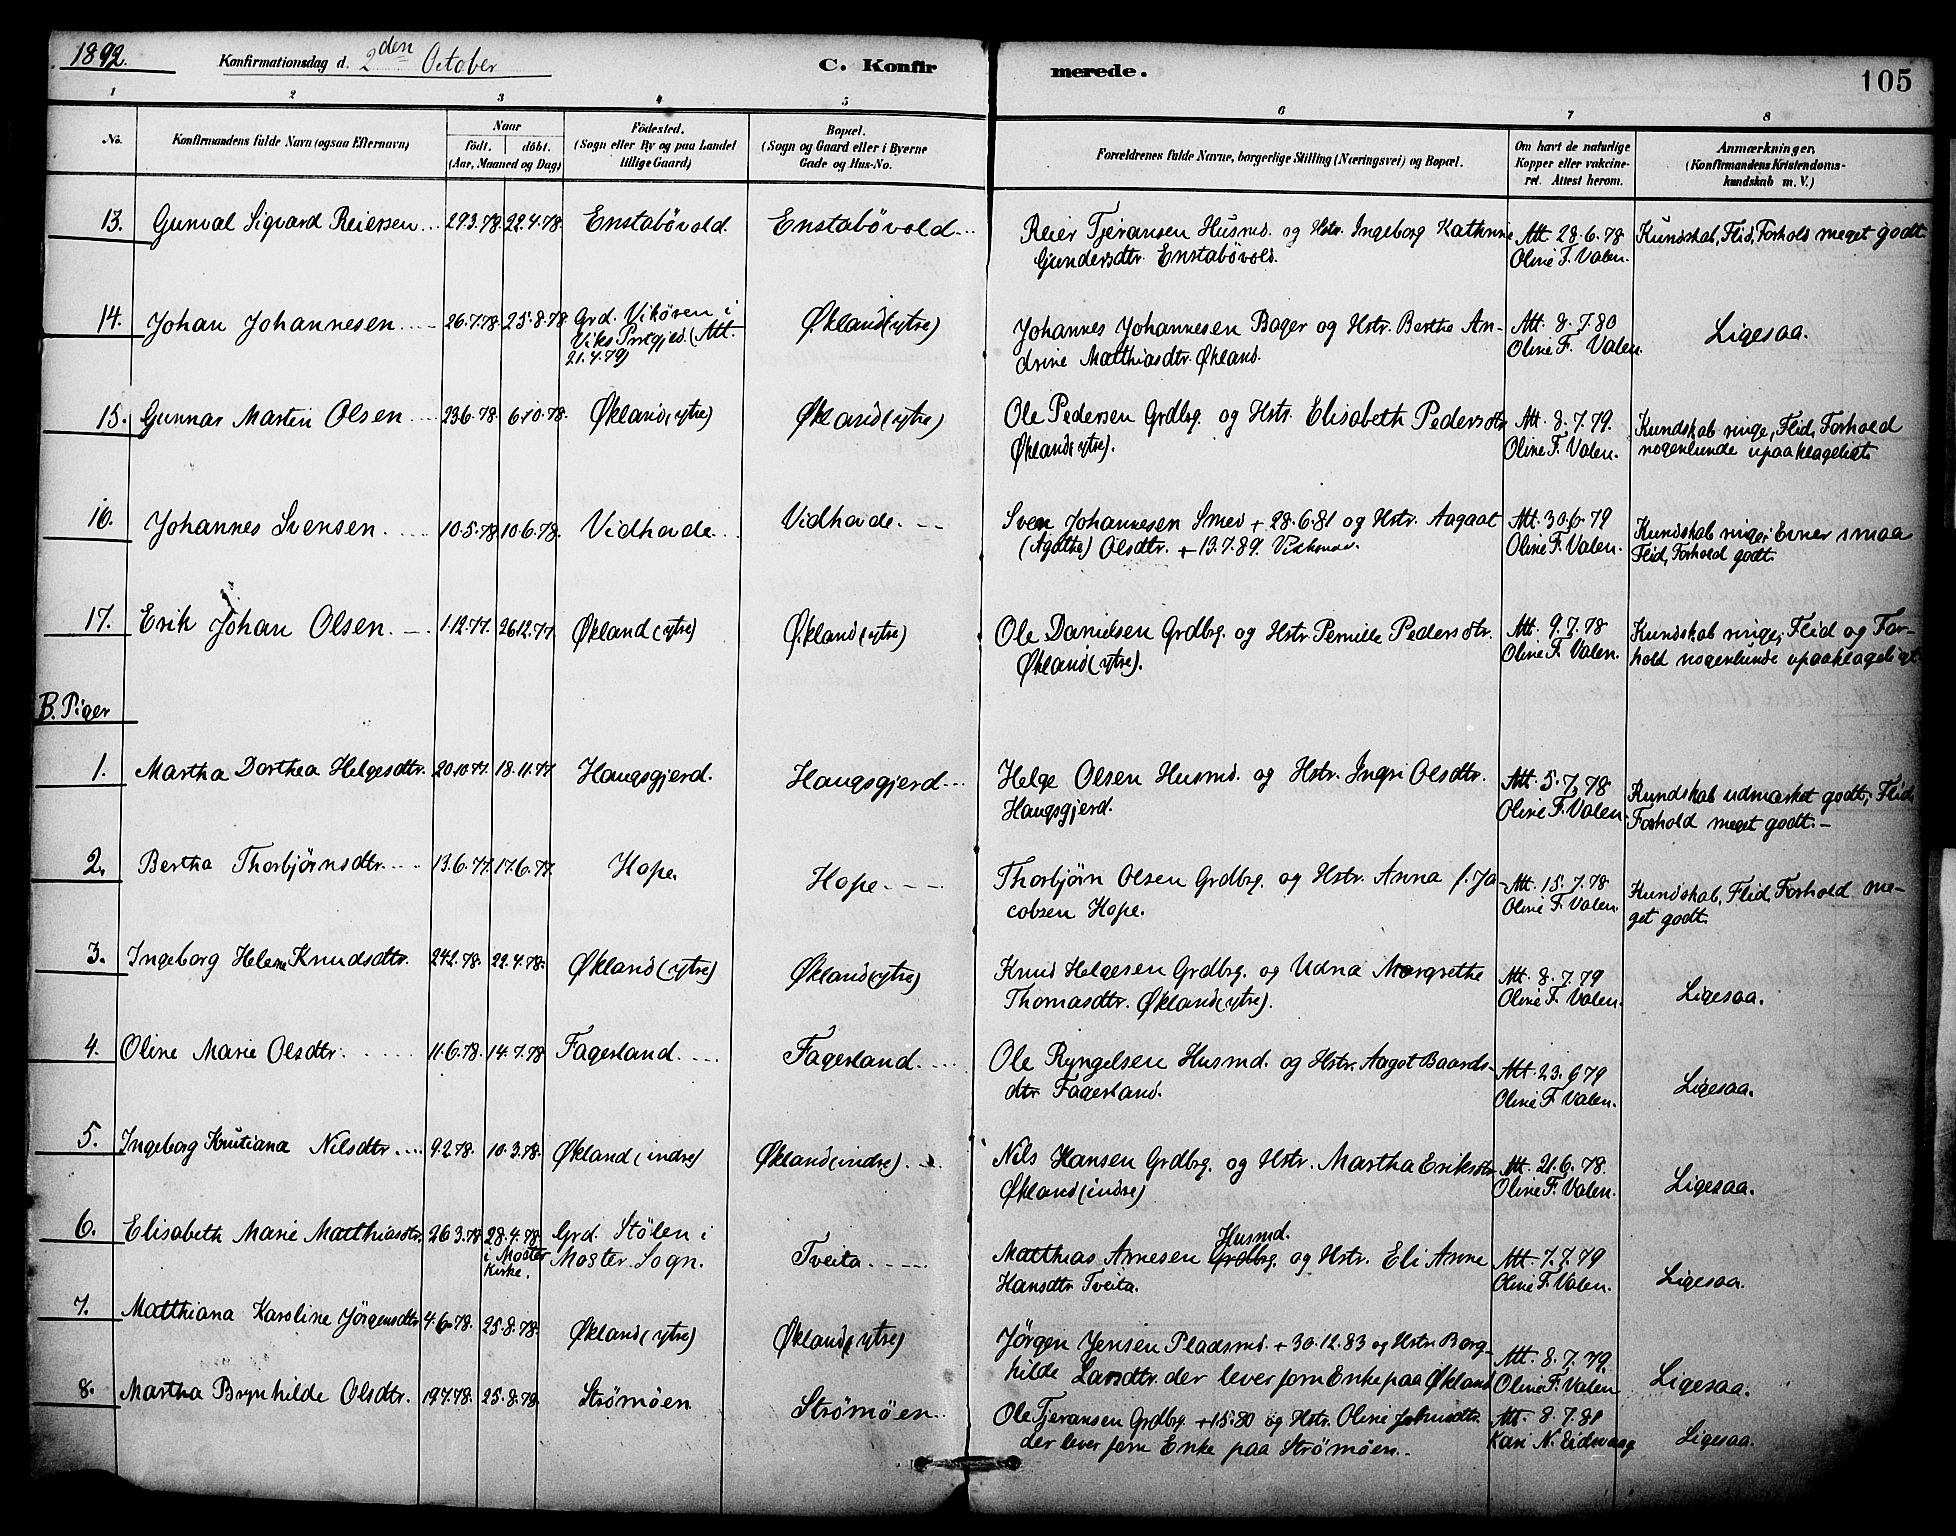 1892. Konfirmationsdag d. 2den October C. Konfirmerede. 105
1 2 3 4 5 6 7 8
No. Konfirmandens fulde Navn (ogsaa Efternavn) Naar födt. döbt. (Aar, Maaned og Dag) Födested. (Sogn eller By og paa Landet tillige Gaard) Bopæl. (Sogn og Gaard eller i Byerne Gade og Hus-No. Forældrenes fulde Navne, borgerlige Stilling (Næringsvei) og Bopæl. Om havt de naturlige Kopper eller vakcineret. Attest herom. Anmærkninger, (Konfirmandens Kristendomskundskab m. V.)
13. Gunval Sigvard Reiersen 29.3.78. 22.4.78. Enstabövold. Enstabövold Reier Tjeransen Husmd. og Hstr. Ingeborg Kathrine Att. 28.6.78 Kundskab, Flid, Forhold meget godt.
Gundersdtr. Enstabövold. Oline F. Valen.
14. Johan Johannesen 26.7.78. 25.8.78. Grd. Vikören i Økland (ytre) Johannes Johannesen Bager og Hstr. Berthe An- Att. 8.7.80 Ligesaa.
Viks Prstgjeld. (Att. drine Matthiasdtr. Økland. Oline F. Valen.
21.4.79)
15. Gunnar Martin Olsen 23.6.78. 6.10.78. Økland (ytre) Økland (ytre) Ole Pedersen Grdbrg. og Hstr. Elisabeth Pedersdtr. Att. 8.7.79. Kundskab ringe, Flid, Forhold
Økland (ytre). Oline F. Valen. nogenlunde upaaklageligt.
16. Johannes Svensen 10.5.78 10.6.78. Vidhovde Vidhovde. Sven Johannesen Smed + 28.6.81 og Hstr. Aagaat Att. 30.6.79 Kundskab ringe; Evner smaa
(Agathe) Olsdtr. + 13.7.89. Vidhovde. Oline F. Valen. Flid, Forhold godt.
17. Erik Johan Olsen 1.12.77. 26.12.77. Økland (ytre) Økland (ytre) Ole Danielsen Grdbrg. og Hstr. Pernille Pedersdtr. Att. 9.7.78 Kundskab ringe; Flid og For-
Økland (ytre). Oline F. Valen. hold nogenlunde upaaklageligt.
B. Piger
1. Martha Dorthea Helgesdtr. 20.10.77. 18.11.77 Haugsgjerd. Haugsgjerd Helge Olsen Husmd. og Hstr. Ingri Olsdtr. Att. 5.7.78 Kundskab udmærket godt; Flid,
Haugsgjerd. Oline F. Valen. Forhold meget godt.
2. Bertha Thorbjörnsdtr. 13.6.77. 17.6.77. Hope. Hope Thorbjørn Olsen Grdbrg. og Hstr. Anna f. Ja- Att. 15.7.78 Kundskab, Flid, Forhold me-
cobsen Hope. Oline F. Valen. get godt.
3. Ingeborg Helene Knudsdtr. 24.2.78. 22.4.78. Økland (ytre) Økland (ytre) Knud Helgesen Grdbrg. og Udna Margrethe Att. 8.7.79 Ligesaa.
Thomasdtr. Økland (ytre). Oline F. Valen.
4. Oline Marie Olsdtr. 11.6.78. 14.7.78 Fagerland Fagerland Ole Ryngelsen Husmd. og Hstr. Aagot Baards- Att. 23.6.79 Ligesaa.
dtr Fagerland. Oline F. Valen.
5. Ingeborg Knutiana Nilsdtr. 9.2.78. 10.3.78. Økland (indre) Økland (indre) Nils Hansen Grdbrg. og Hstr. Martha Eriksdtr. Att. 21.6.78. Ligesaa.
Økland (indre) Oline F. Valen.
6. Elisabeth Marie Matthiasdtr. 26.3.78 28.4.78. i Moster Kirke. Grd. Stölen i Moster Sogn. Tveita Husmd.
Matthias Arnesen Grdbrg. og Hstr. Eli Anne Att. 7.7.79 Ligesaa.
Hansdtr Tveita. Oline F. Valen.
7. Matthiana Karoline Jörgensdtr 4.6.78. 25.8.78. Økland (ytre) Økland (ytre) Jörgen Jensen Pladsmd. + 30.12.83 og Hstr. Borg- Att. 8.7.79. Ligesaa.
hilde Larsdtr. der lever som Enke paa Økland Oline F. Valen
8. Martha Brynhilde Olsdtr. 19.7.78. 25.8.78. Strömöen Strömöen Ole Tjeransen Grdbrg. og Hstr. Oline Att. 8.7.81 Ligesaa.
der lever som Enke paa Strömöen. Kari N. Eidsvaag